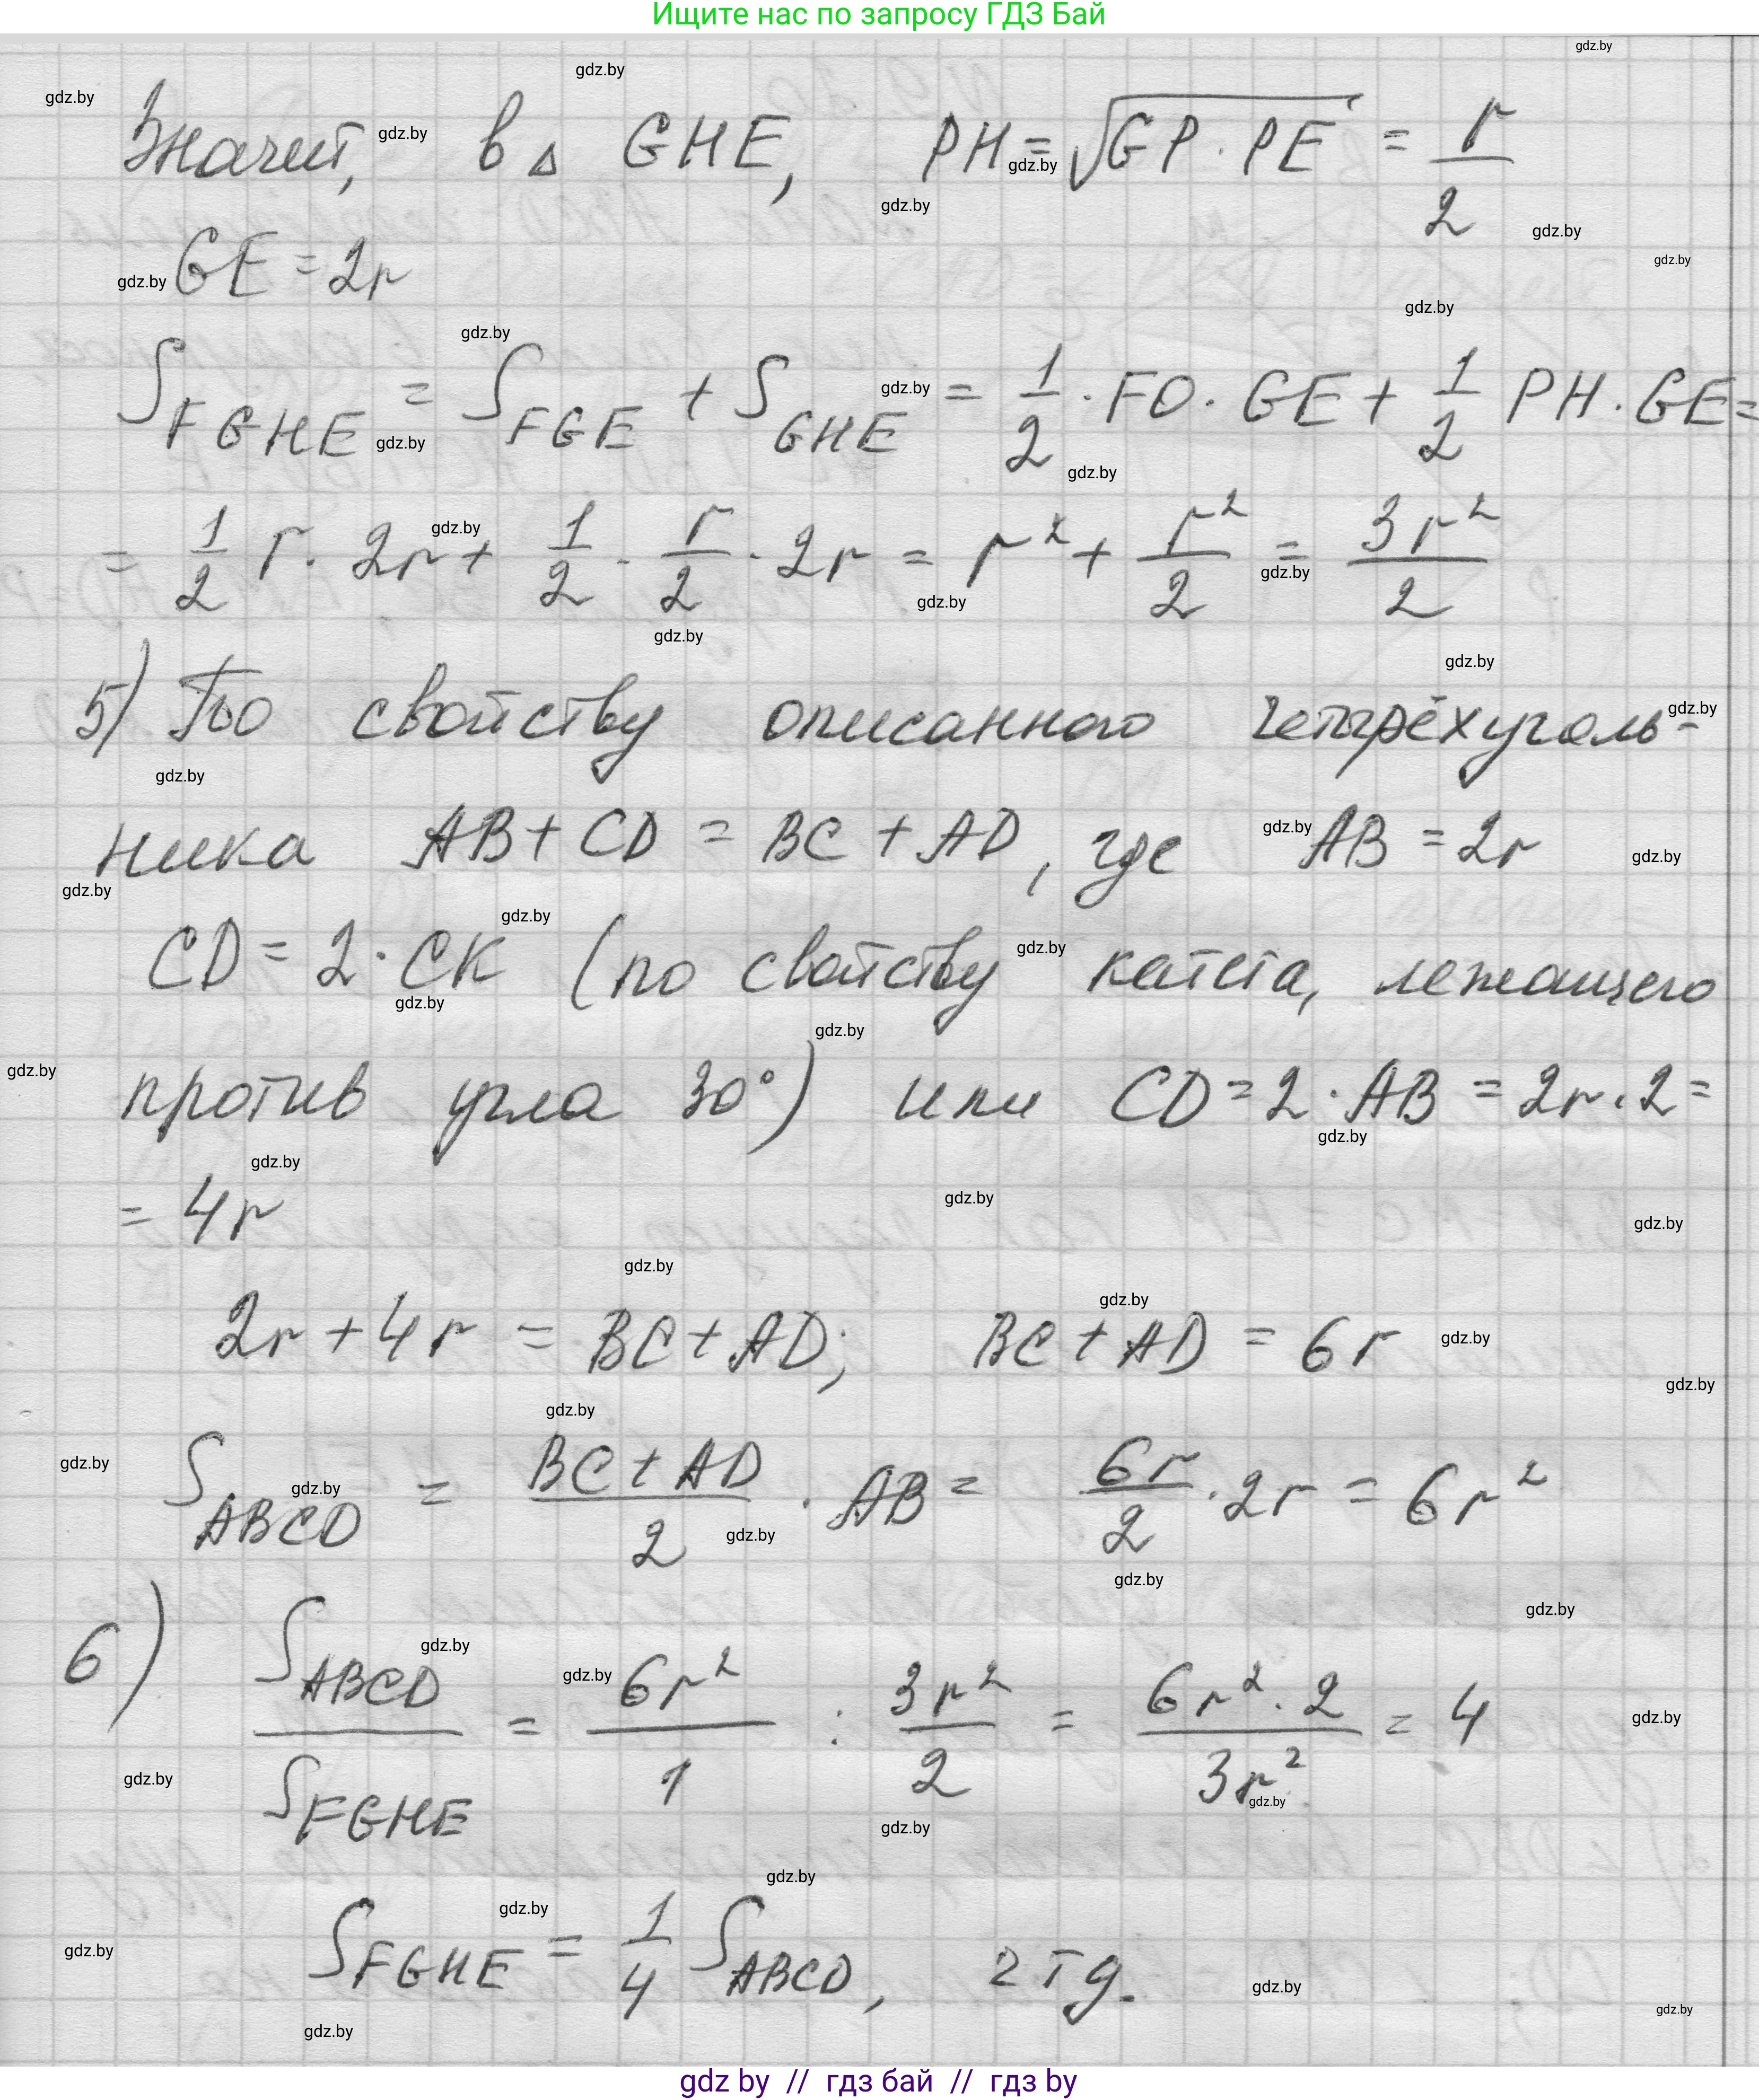 Ищите нас по запросу ГДЗ Бай
Значит, в △ GHE, PH = √(GP · PE) = r/2
GE = 2r
S_FGHE = S_FGE + S_GHE = 1/2 · FO · GE + 1/2 PH · GE =
= 1/2 r · 2r + 1/2 · r/2 · 2r = r² + r²/2 = 3r²/2
5) По свойству описанного четырёхуголь-
ника AB + CD = BC + AD, где AB = 2r
CD = 2 · CK (по свойству катета, лежащего
против угла 30°) или CD = 2 · AB = 2r · 2 =
= 4r
2r + 4r = BC + AD; BC + AD = 6r
S_ABCD = (BC + AD)/2 · AB = 6r/2 · 2r = 6r²
6) S_ABCD/S_FGHE = 6r²/1 : 3r²/2 = (6r² · 2)/(3r²) = 4
S_FGHE = 1/4 S_ABCD, чтд.
gdz by // гдз бай // гдз by